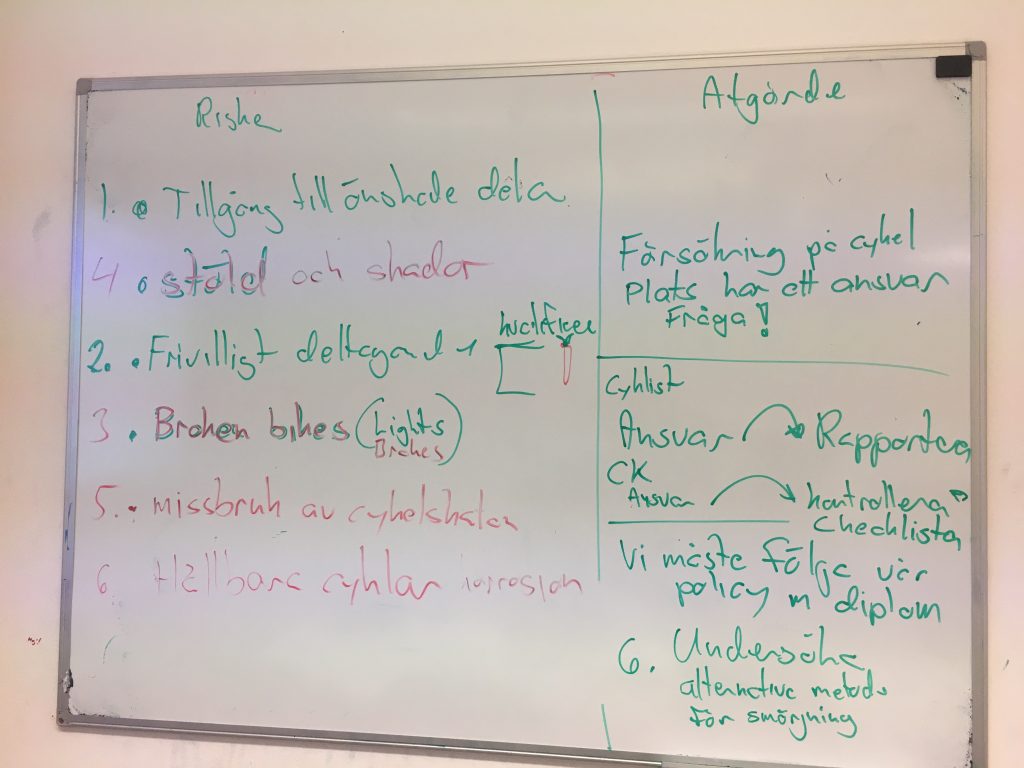 Riske
1. Tillgång till önskade dela
4 stöld och skador
2. Frivilligt deltagand
3. Broken bikes (Lights
Brakes)
5. missbruk av cykelskolan
6. Hållbara cyklar korrosion
Åtgärde
Försäkring på cykel
Plats har ett ansvar
Fråga!
Cyklist
Ansvar → Rapportera
CK
Ansvar → kontrollera
Checklista
Vi måste följa vår
policy m diplom
6. Undersöka
alternative metode
för smörjning